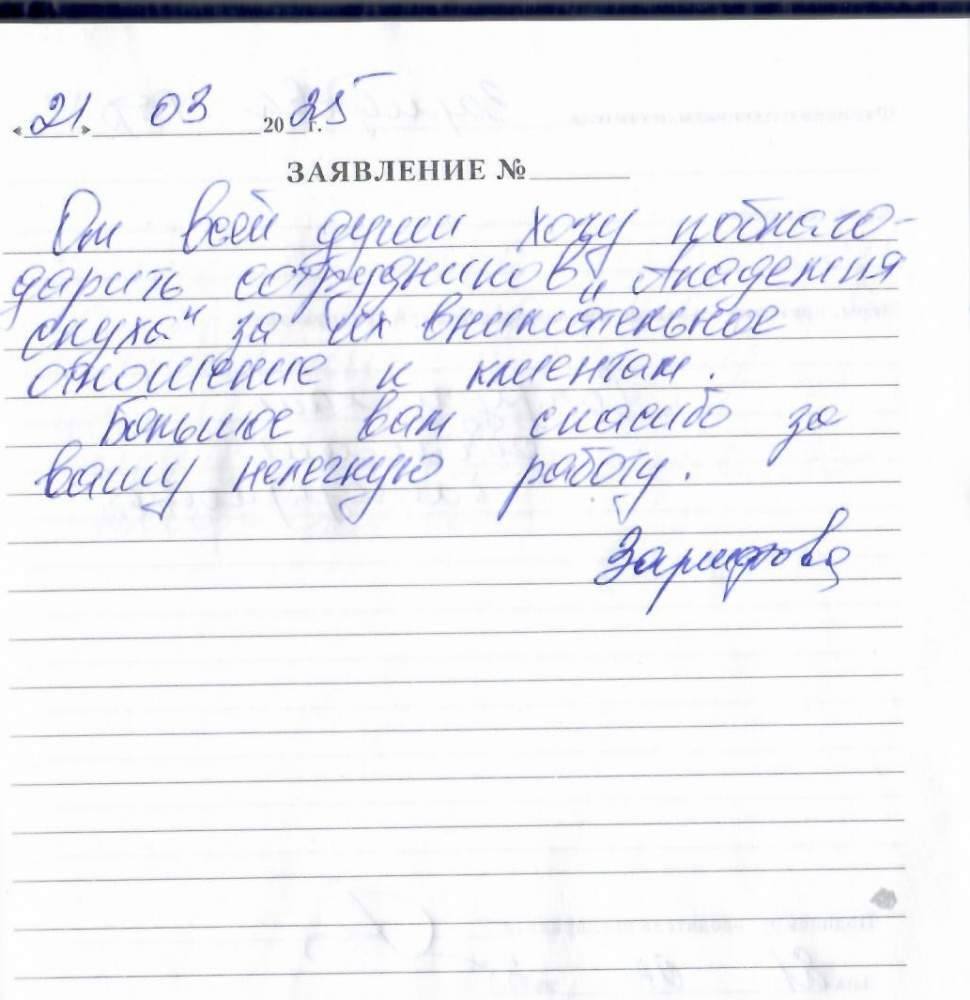 «21» 03 2025 г.
ЗАЯВЛЕНИЕ №
От всей души хочу поблаго-
дарить сотрудников „Академия
слуха" за их внимательное
отношение к клиентам.
Большое вам спасибо за
вашу нелегкую работу.
Зарифова